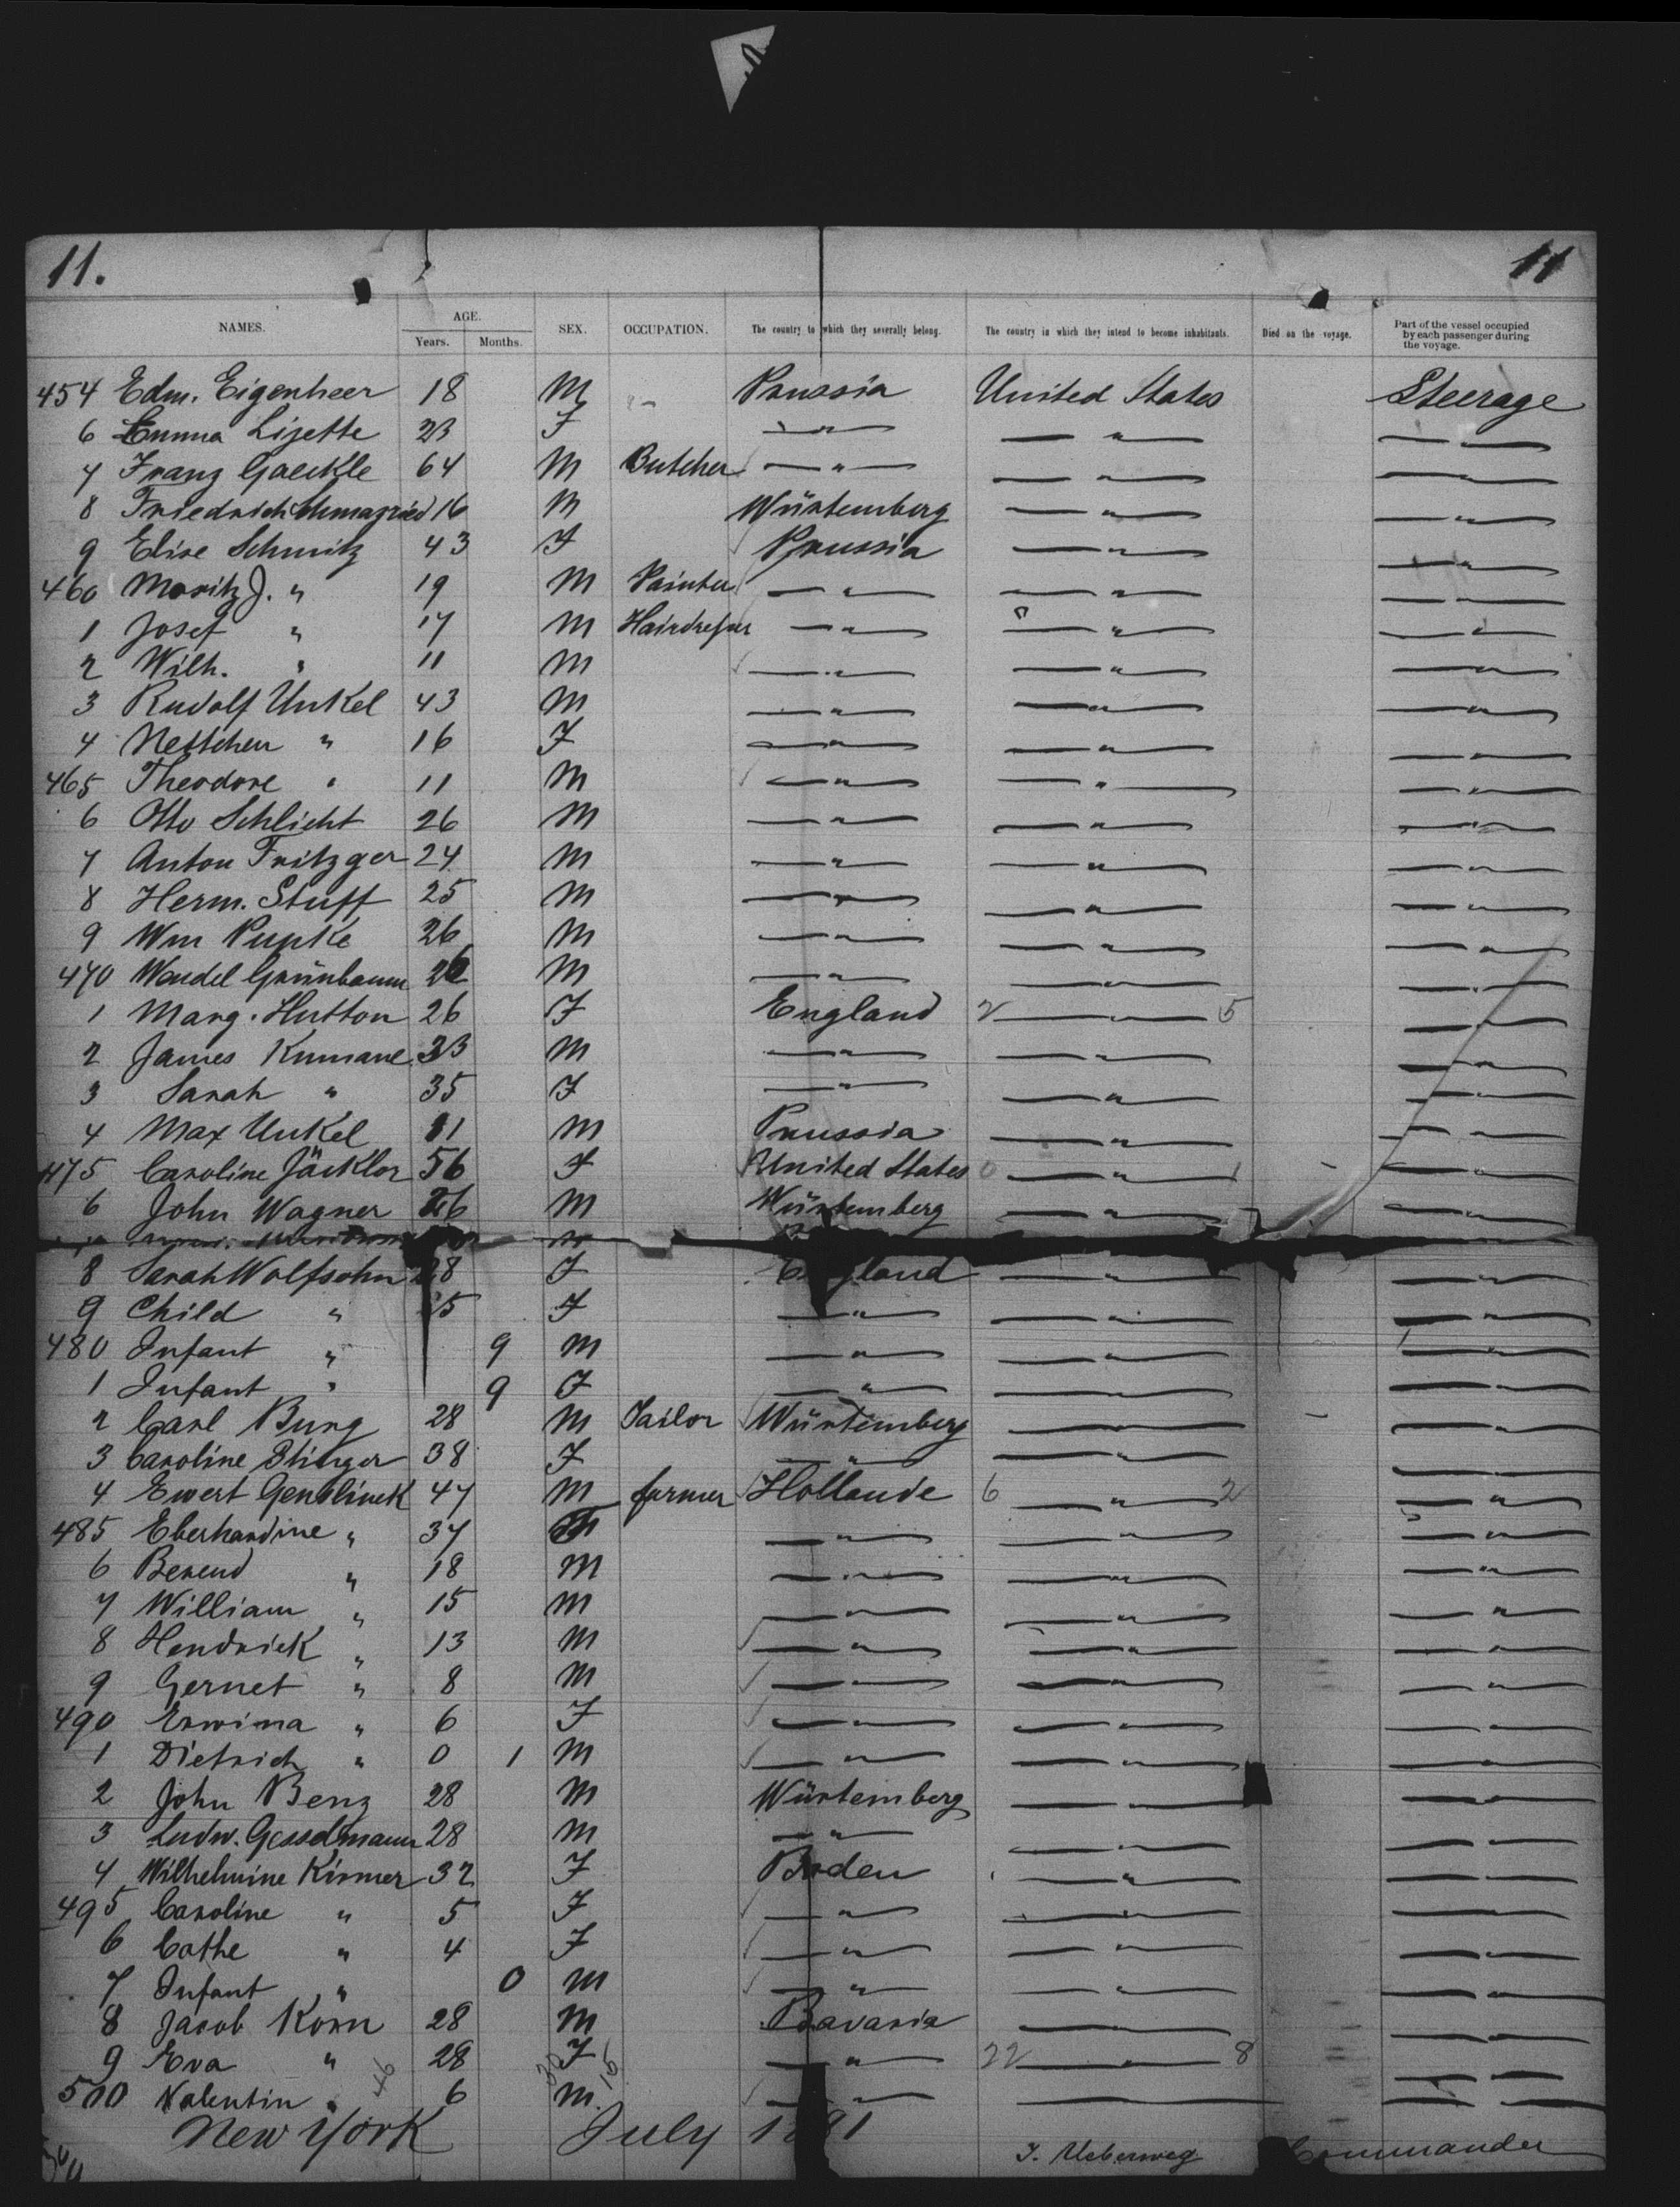 11. 11
NAMES. AGE. Years. Months. SEX. OCCUPATION. The country to which they severally belong. The country in which they intend to become inhabitants. Died on the voyage. Part of the vessel occupied by each passenger during the voyage.
454 Edm. Eigenheer 18 M Prussia United States Steerage
6 Emma Lisette 23 F " " "
7 Franz Gaeckle 64 M Butcher " " "
8 Friedrich 16 M Würtemberg " "
9 Elise Schmitz 43 F Prussia " "
460 Moritz J. " 19 M Painter " " "
1 Josef " 17 M " " "
2 Wilh. " 11 M " " "
3 Rudolf Unkel 43 M " " "
4 Nettchen " 16 F " " "
465 Theodore " 11 M " " "
6 Otto Schlicht 26 M " " "
7 Anton Fritzger 24 M " " "
8 Herm. Stuff 25 M " " "
9 Wm Pupke 26 M " " "
470 Wendel Grünbaum M " " "
1 Marg. Hutton 26 F England 2 " 5 "
2 James 33 M " " "
3 Sarah " 35 F " " "
4 Max Unkel 11 M Prussia " "
475 Caroline Jäckler 56 F United States 0 " 1 "
6 John Wagner 26 M Würtemberg " "
8 Sarah Wolfsohn 28 F England " "
9 Child " 5 F " " "
480 Infant " 9 M " " "
1 Infant " 9 F " " "
2 Carl Burg 28 M Tailor Würtemberg " "
3 Caroline 38 F " " "
4 Ewert 47 M farmer Hollande 6 " 2 "
485 Eberhardine " 37 F " " "
6 Berend " 18 M " " "
7 William " 15 M " " "
8 Hendrick " 13 M " " "
9 Gernet " 8 M " " "
490 Erwina " 6 F " " "
1 Dietrich " 0 1 M " " "
2 John Benz 28 M Würtemberg " "
3 Ludw. Gesselmann 28 M " " "
4 Wilhelmine Kirmer 32 F Baden " "
495 Caroline " 5 F " " "
6 Cathe " 4 F " " "
7 Infant " 0 M " " "
8 Jacob Korn 28 M Bavaria " "
9 Eva " 28 F " 22 " 8 "
500 Valentin " 6 M " "
46 30 16
New York July 1881
J. Ueberweg Commander